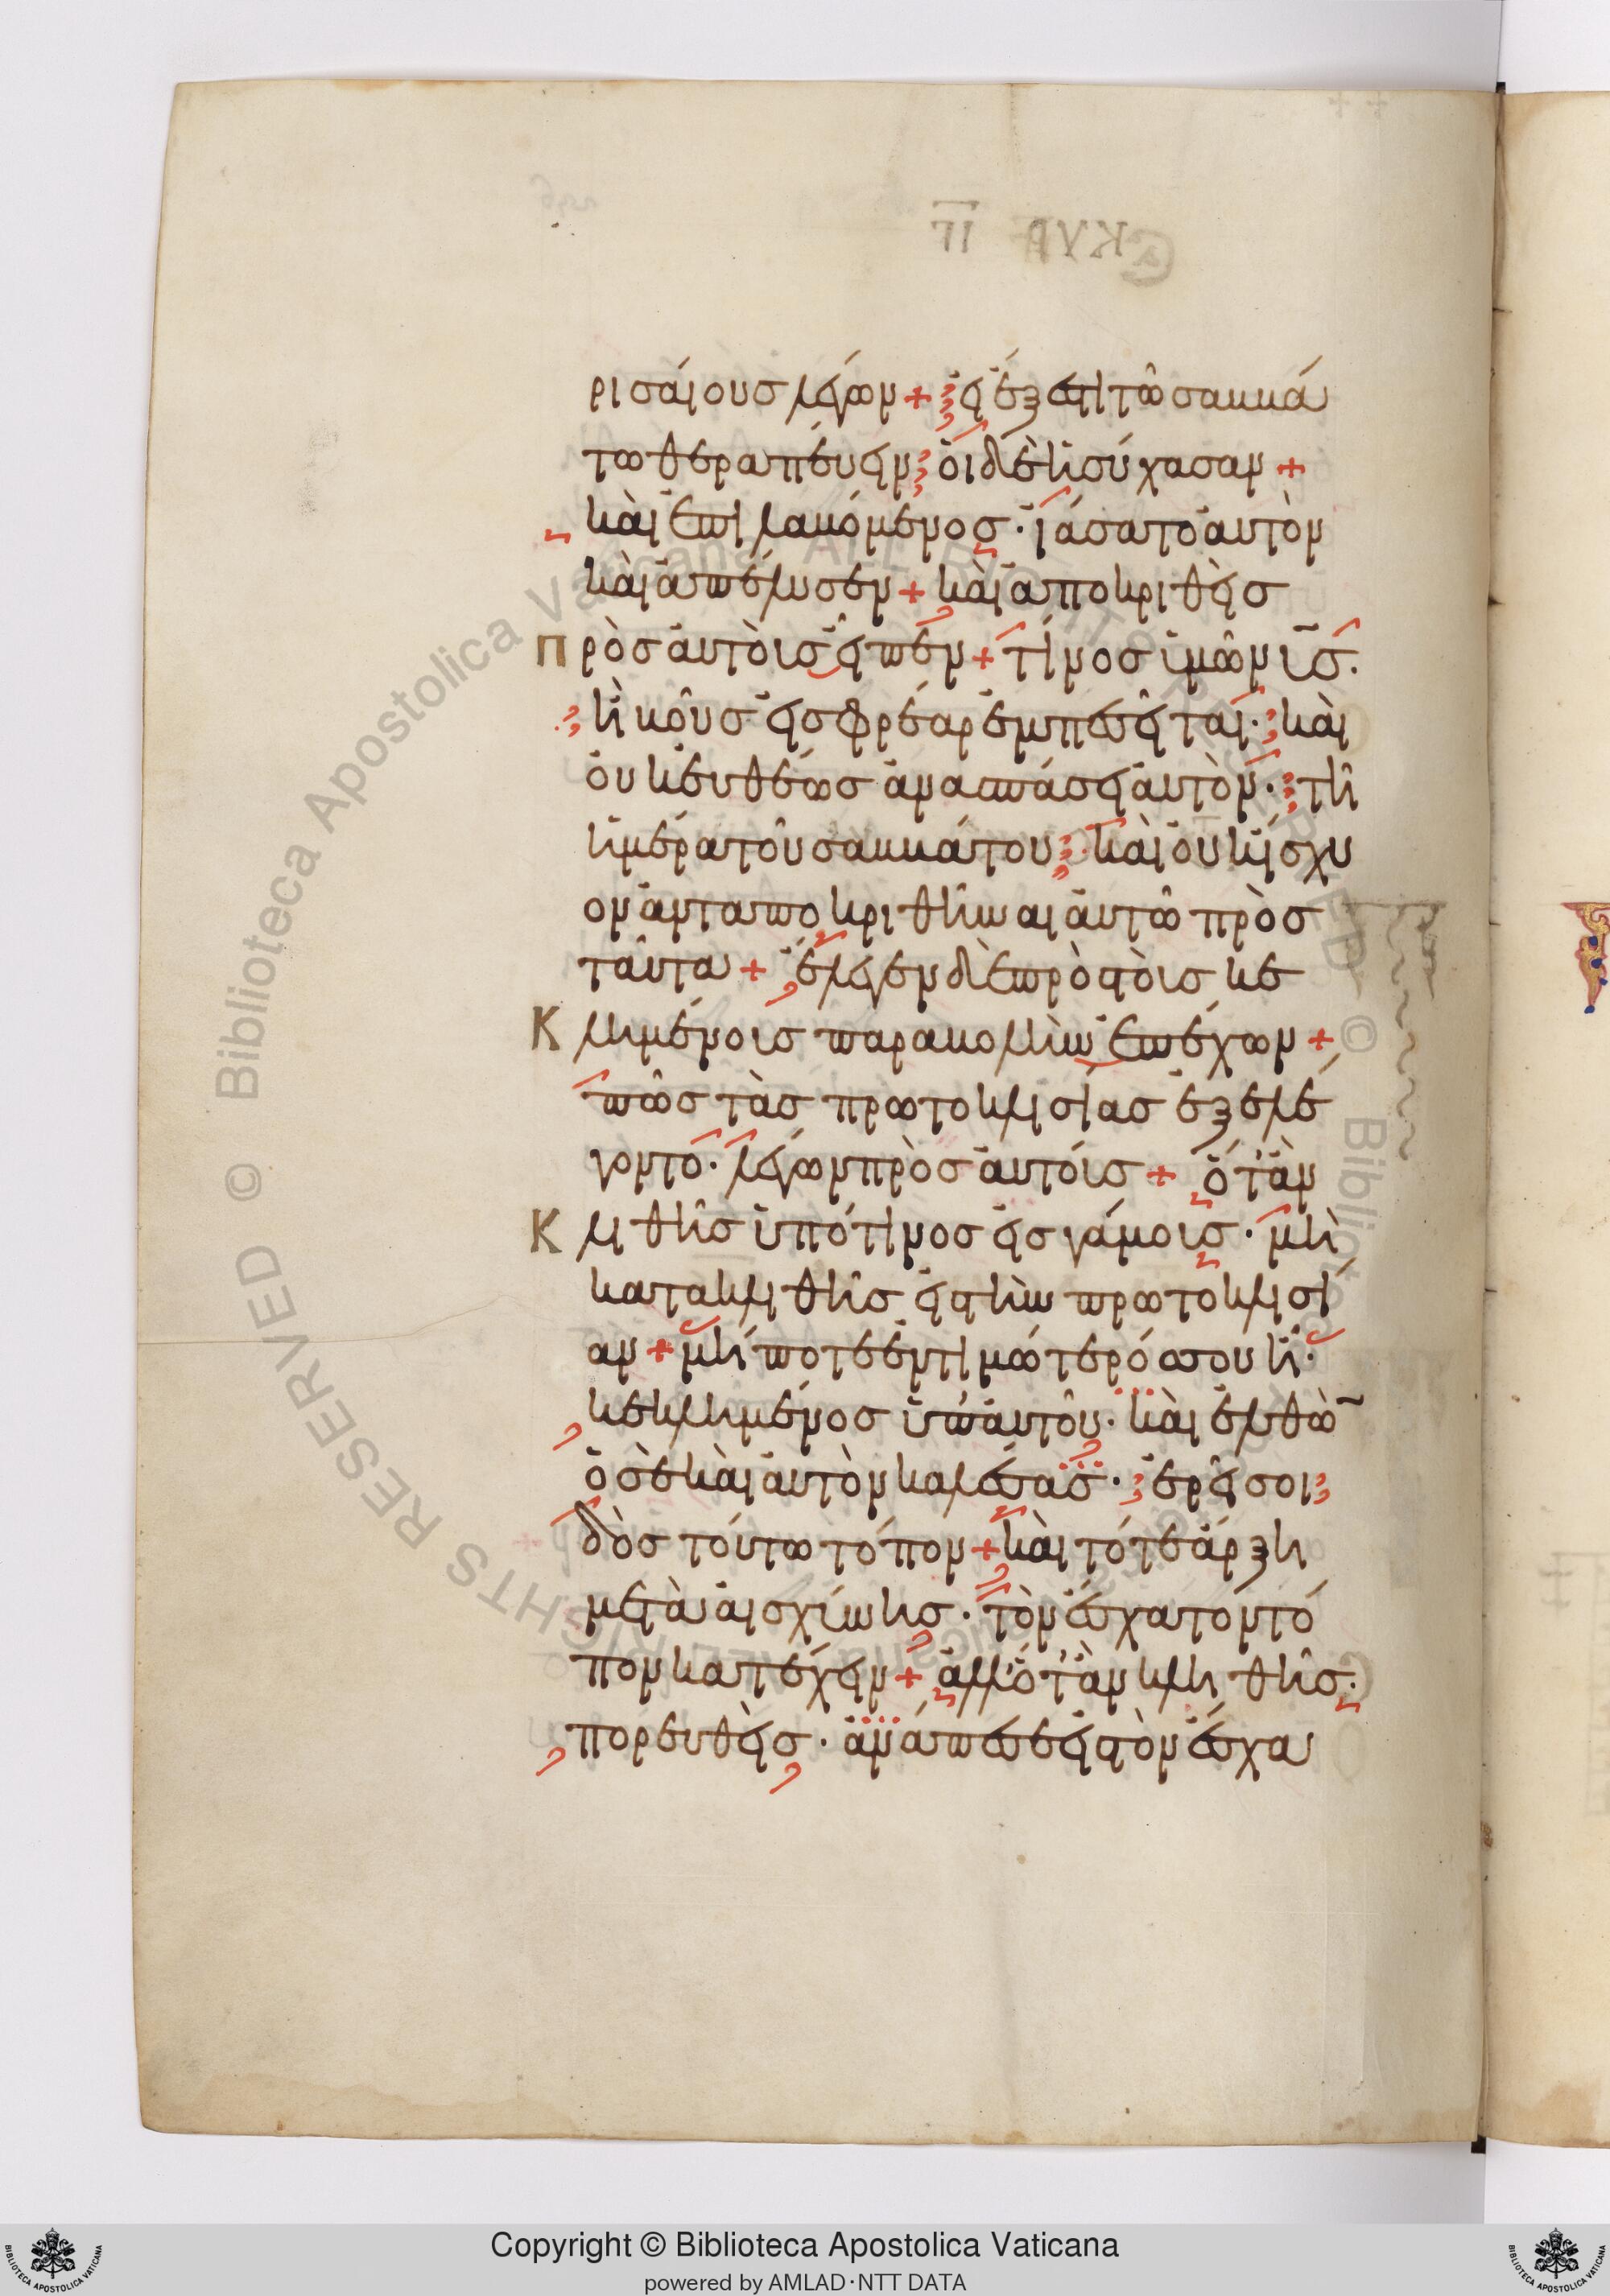 ρισαίουσ λέγων + εἰ ἔξεστι τῶ σακκά
τω θεραπέυειν; ὁι δὲ ἡσύχασαν +
κὰι ἐπιλακόμενοσ · ἰάσατο ἀυτὸν
κὰι ἀπέλυσεν + κὰι ἀποκριθεὶσ
πρὸσ ἀυτὸισ εἶπεν + τίνοσ ἱμῶν ῡἱσ.
ἢ κοῦσ εἰσ φρέαρ ἐμπεσεῖται · κὰι
ὀυκ ἐυθέωσ ἀνασπάσει ἀυτὸν · τῆ
ἡμέρα τοῦ σακκάτου; κὰι ὀυκ ἴσχυ
ον ἀνταποκριθῆναι ἀυτῶ πρὸσ
ταῦτα + ἔλεγεν δὲ πρὸσ τὸισ κε
κλημένοισ παρακολὴν ἐπέχων +
πῶσ τὰσ πρωτοκλισίασ ἐξελέ
γοντο · λέγων πρὸσ ἀυτόισ + ὅτἂν
κλιθῆσ ὑπό τινοσ εἰσ γάμοισ · μὴ
κατακλιθῆσ εἰσ τὴν πρωτοκλισί
αν + μήποτε ἐντιμώτερόσ σου ἦ ·
κεκλημένοσ ὑπ' ἀυτοῦ · κὰι ἐλθὼ̄
ὁ σὲ κὰι ἀυτὸν καλέσασ · ἐρεῖ σοι;
δὸσ τόυτω τόπον + κὰι τότε ἄρξη
μετὰ ἀισχύνησ · τὸν ἔσχατον τό
πον κατέχειν + ἀλλ' ὅτἂν κληθῆσ ·
πορευθεὶσ · ἀνάπεσε εἰσ τὸν ἔσχα
Copyright © Biblioteca Apostolica Vaticana
powered by AMLAD·NTT DATA